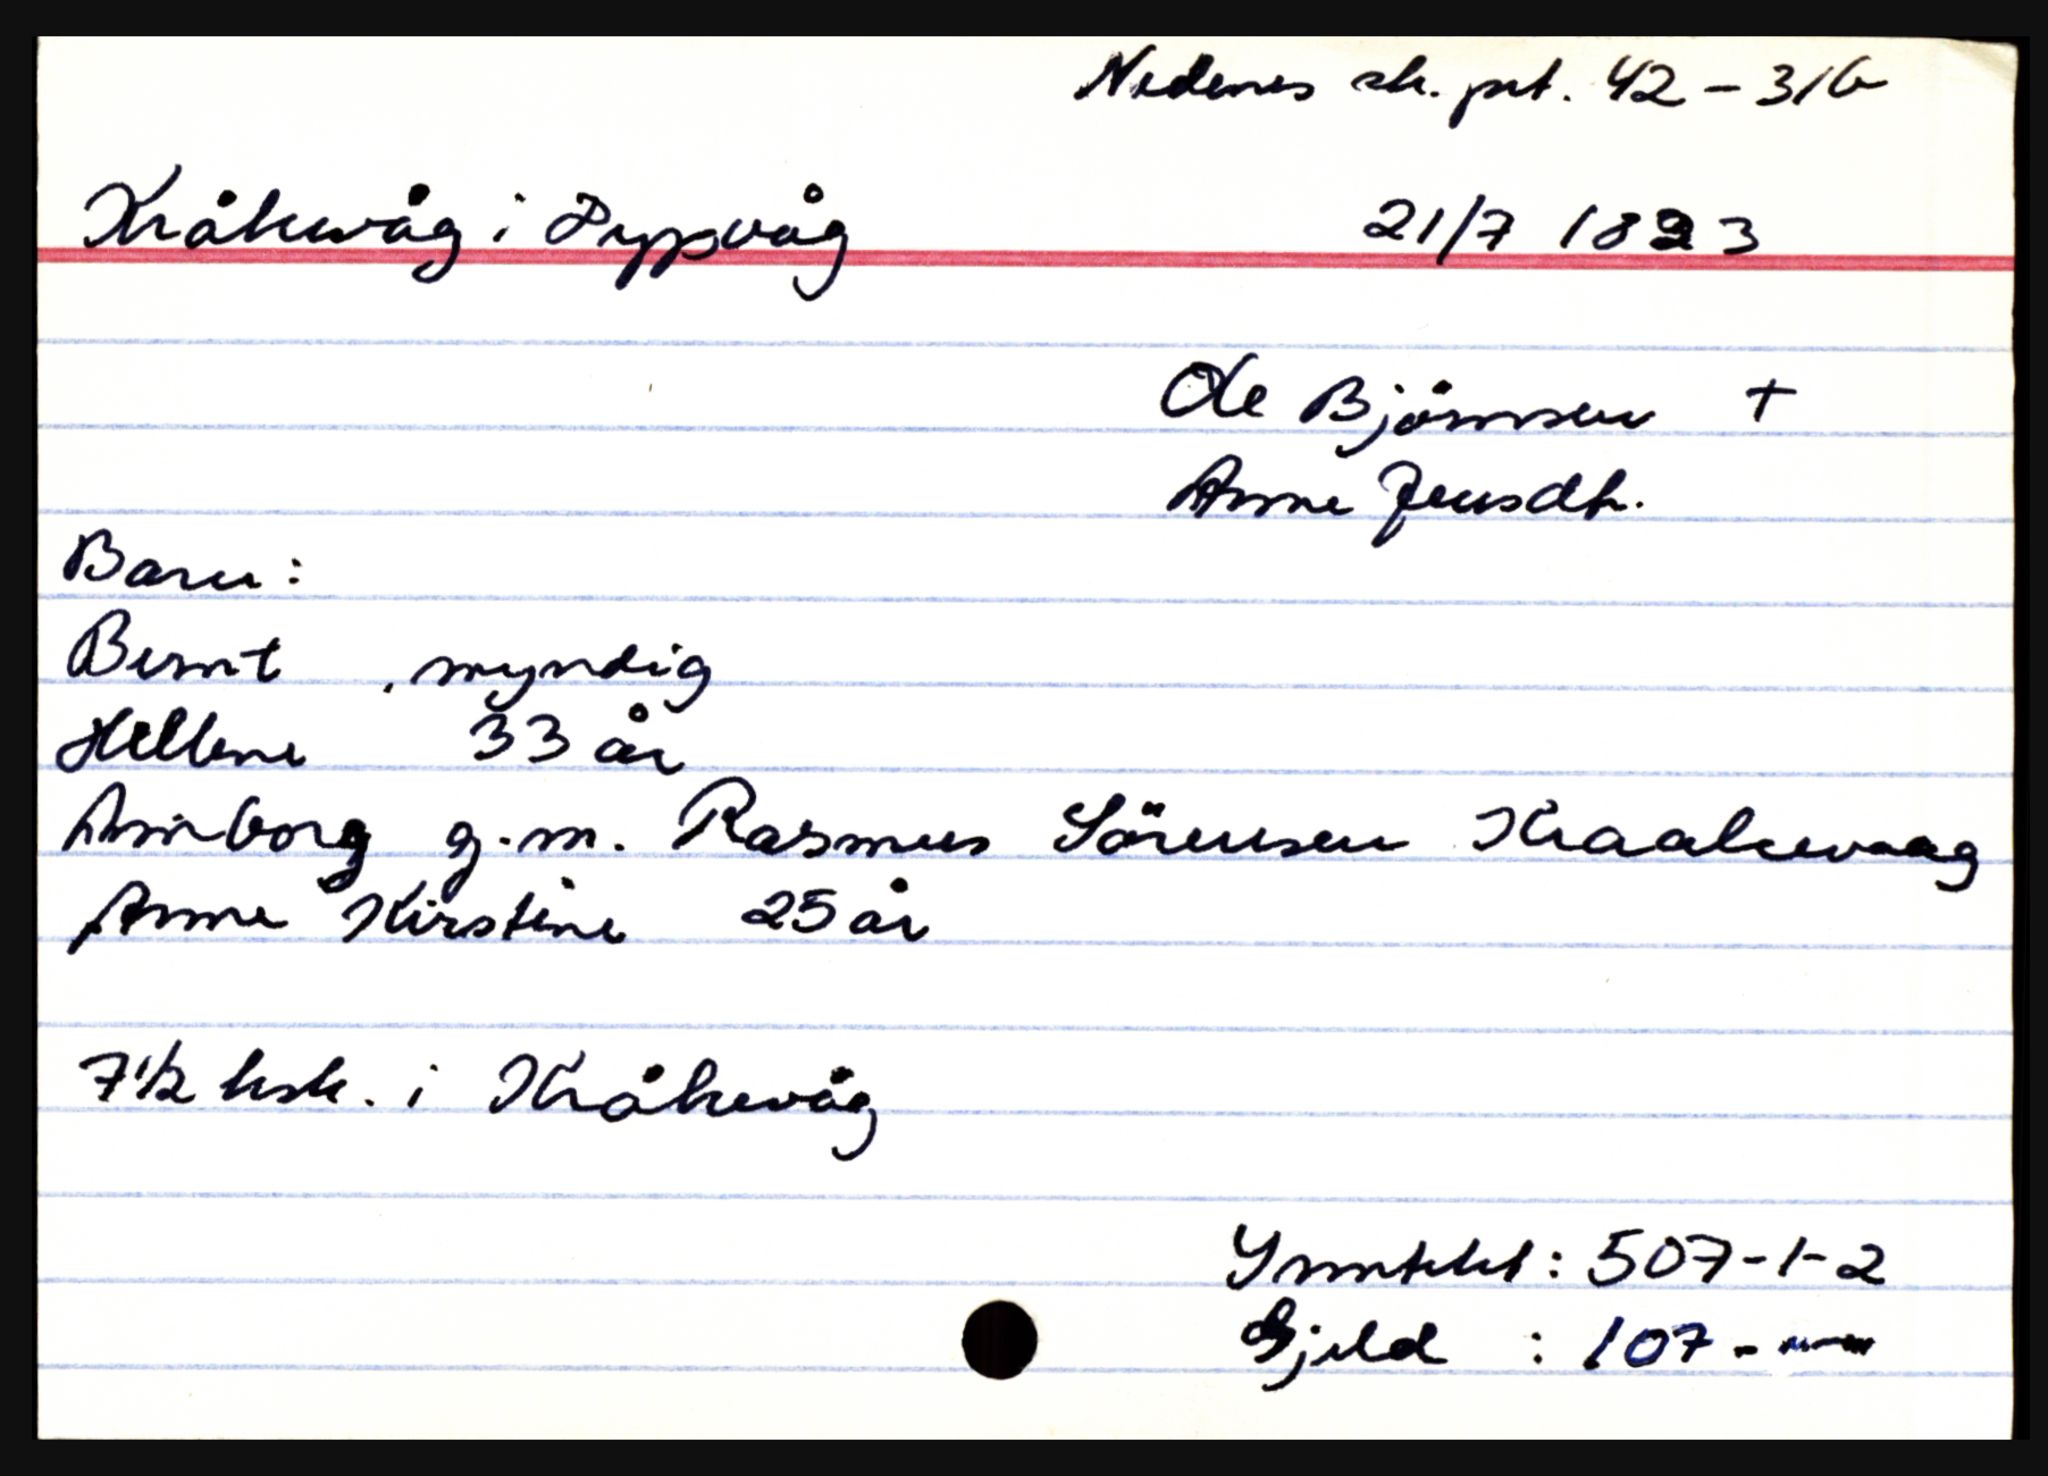 Nedenes sk. prt. 42 - 31b
Kråkevåg i Dypvåg 21/7 1823
Ole Björnsen +
Anne Jensdtr.
Barn:
Bernt , myndig
Hellene 33 år
Annborg g.m. Rasmus Sörensen Kraakevaag
Anne Kirstine 25 år
7 1/2 ksk. i Kråkevåg
: 507-1-2
Gjeld : 107-"-"